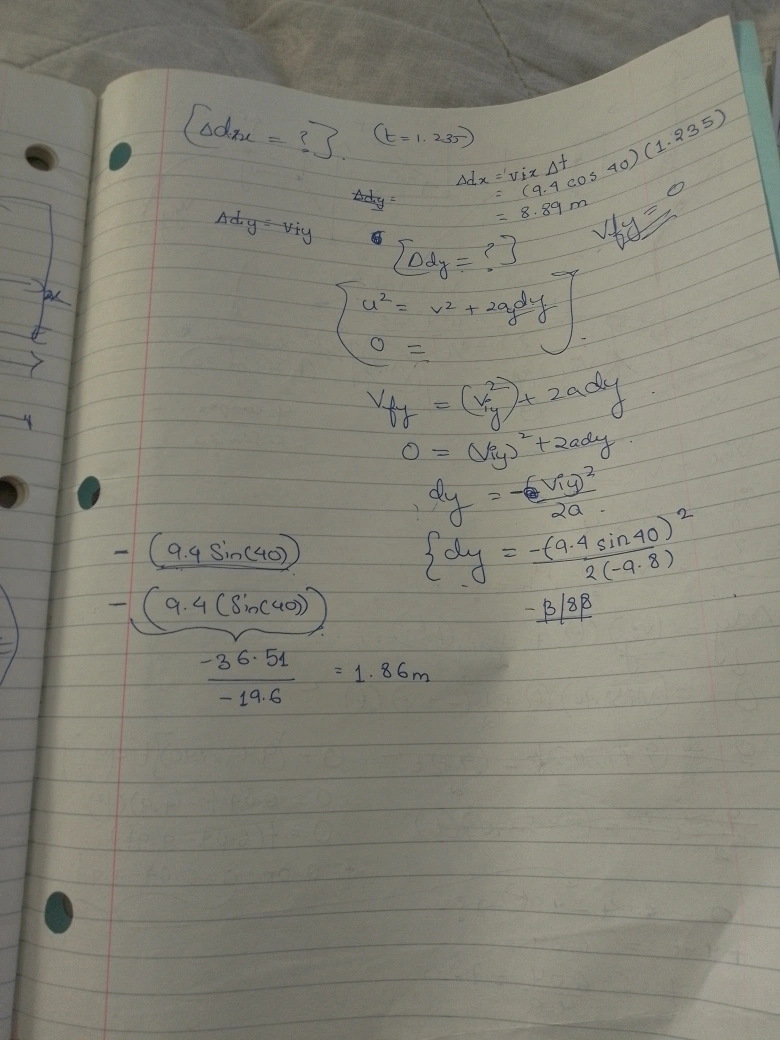 [Δdx = ?]. (t = 1.235)
Δdx = Vix Δt
= (9.4 cos 40)(1.235)
= 8.89 m
Δdy =
Δdy = Viy
Vfy = 0
[Δdy = ?]
u² = v² + 2ady
0 =
Vfy = (Viy²) + 2ady.
0 = (Viy)² + 2ady.
dy = -(Viy)² / 2a.
{dy = -(9.4 sin 40)² / 2(-9.8)
- (9.4 Sin(40))
- (9.4 (Sin(40))
-36.51 / -19.6 = 1.86m